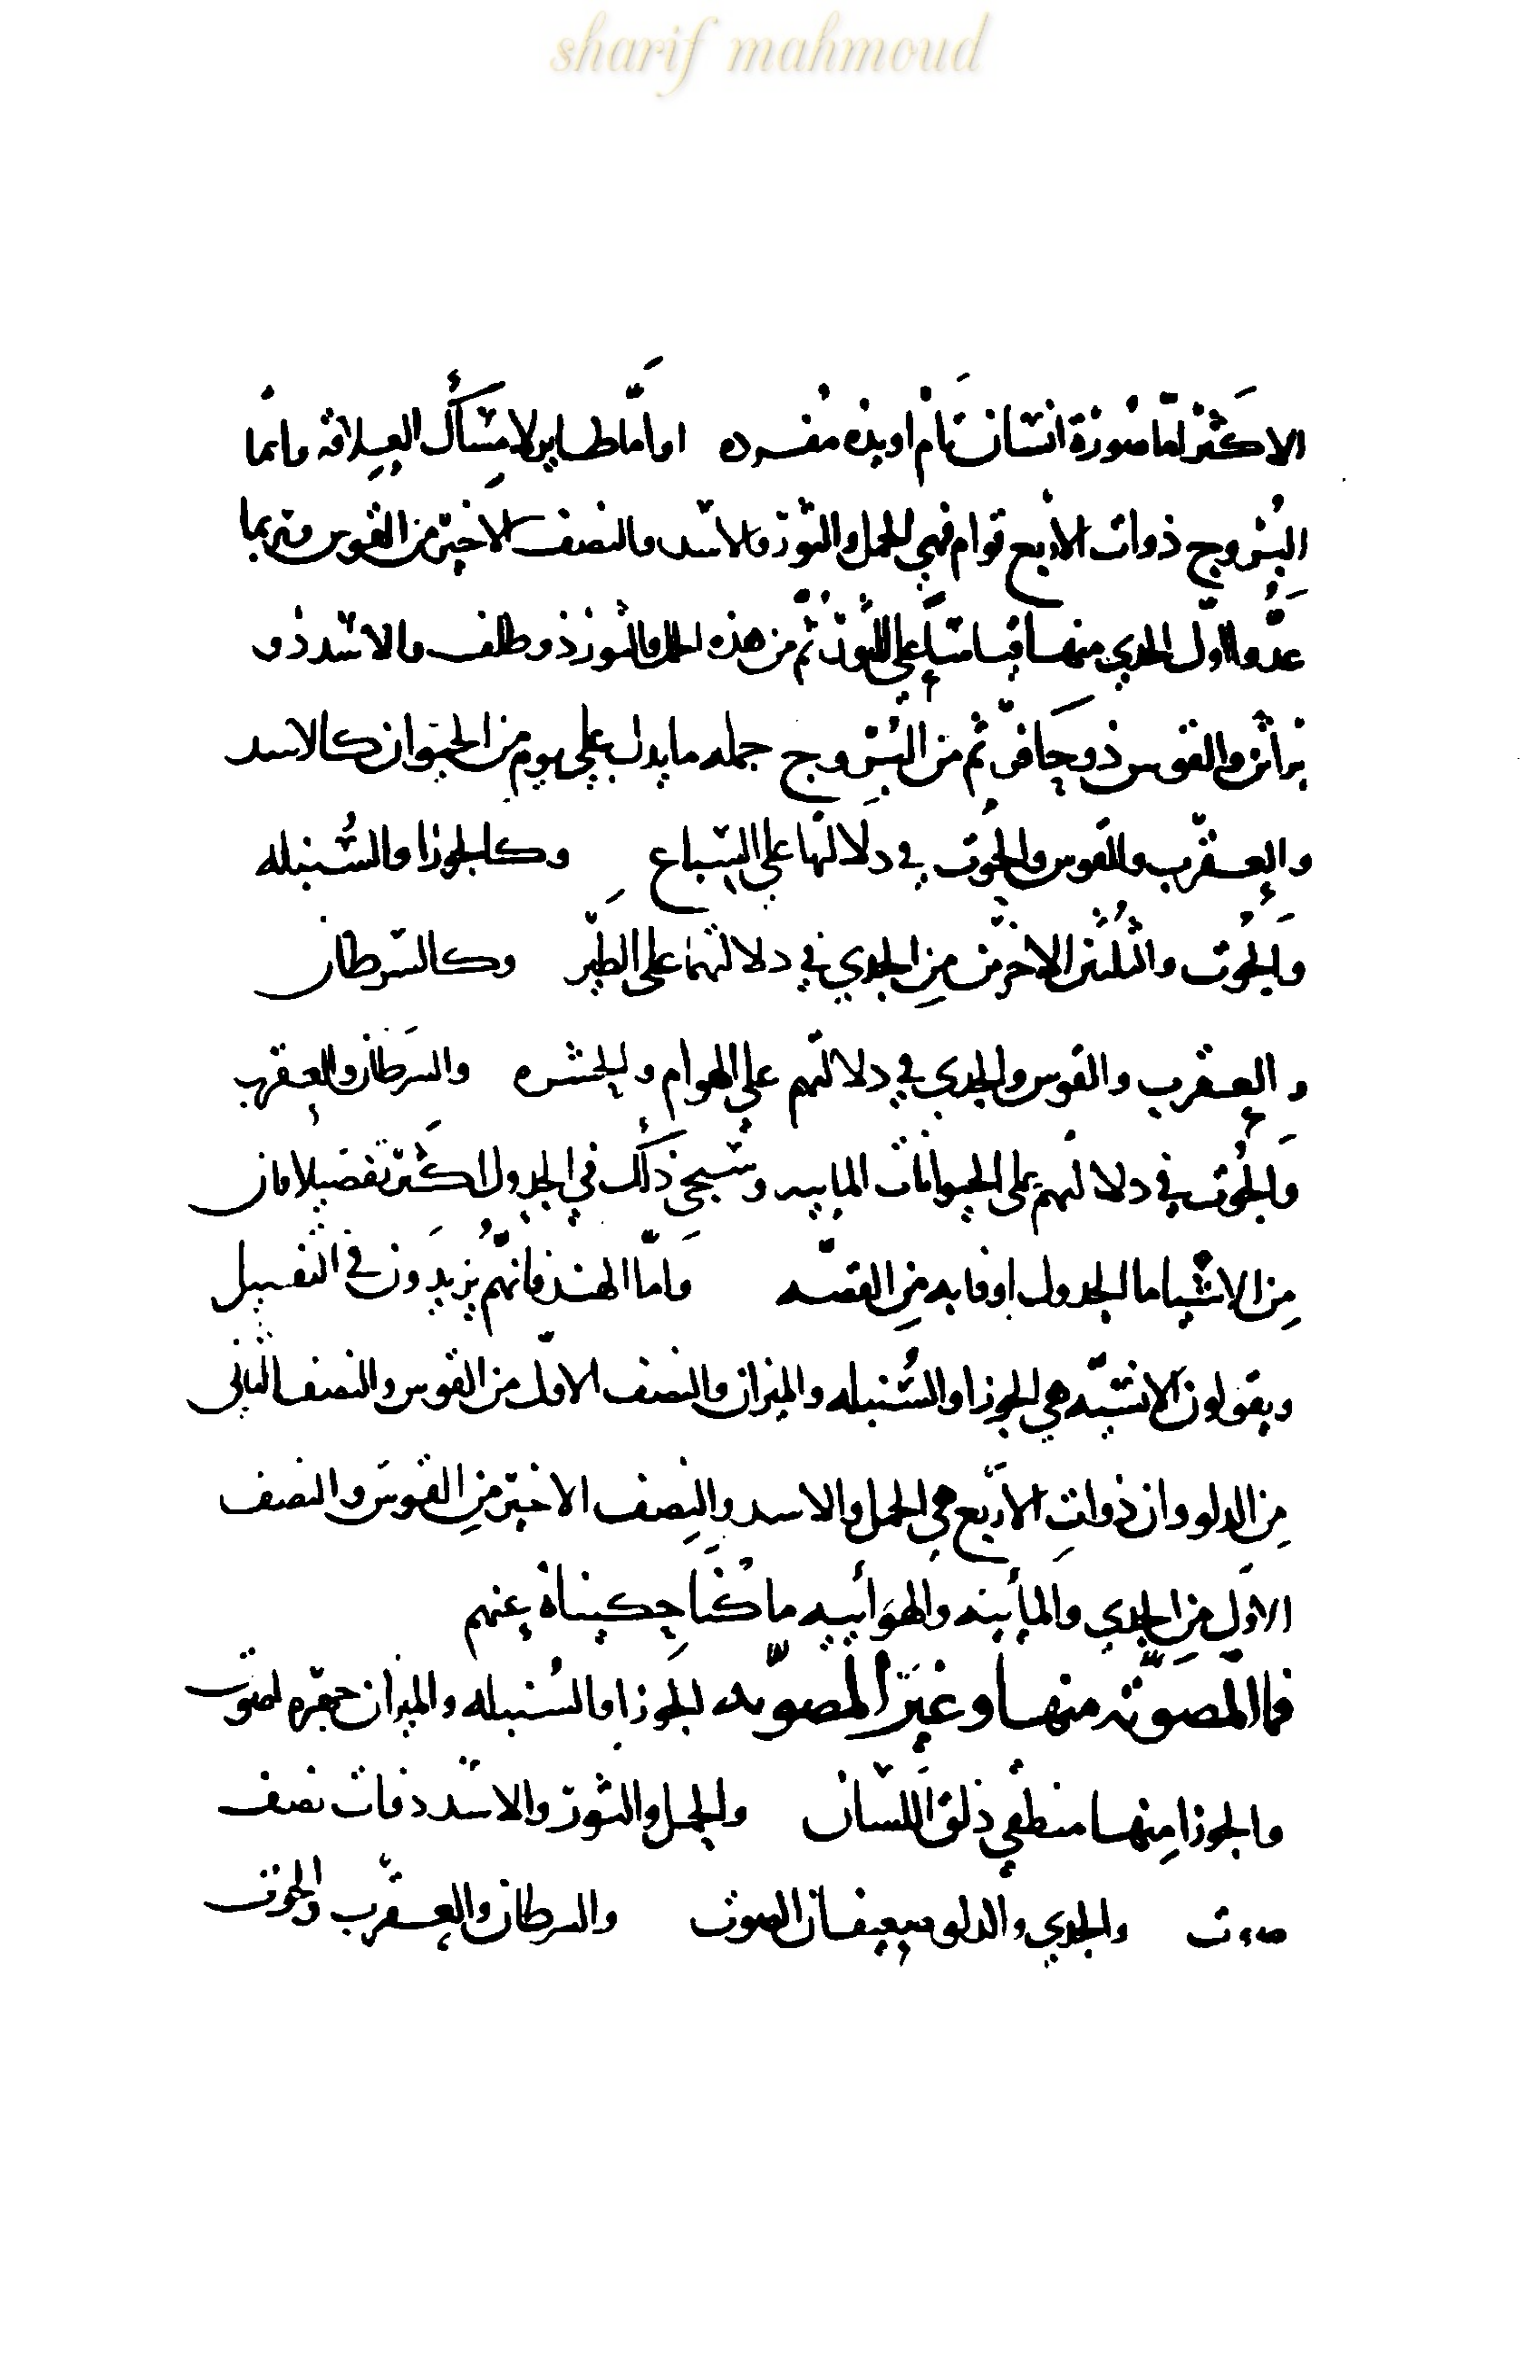 sharif mahmoud
الاكثر اما صورة انسان تام او بدنه مفرده او اما طاير لامساك العلاقه واما
البروج ذوات الاربع قوام فهي الحمل والثور والاسد والنصف الاخير من القوس وربما
عدوا اول الجدي منها قياسا علي الثور ثم من هذه الحمل والثور ذو ظلف والاسد ذو
براثن والقوس ذو حافر ثم من البروج جمله ما يدل علي يوم من الحيوان كالاسد
والعقرب والقوس والحوت في دلالتها علي السباع وكالجوزا والسنبله
والحوت والثلثين الاخرين من الجدي في دلالتهما علي الطير وكالسرطان
والعقرب والقوس والجدي في دلالتهم علي الهوام والحشره والسرطان والعقرب
والحوت في دلالتهم علي الحيوانات الماييه وسيجي ذلك في الجدول اكثر تفصيلا فان
من الاشيا ما الجدول اوفا به من القصه واما الهند فانهم يزيدون في التفصيل
ويقولون الانسيه هي الجوزا والسنبله والميزان والنصف الاول من القوس والنصف الثاني
من الدلو وان ذوات الاربع هي الحمل والاسد والنصف الاخير من القوس والنصف
الاول من الجدي والمأييه والهوأييه ما كنا حكيناه عنهم
فما المصوته منها وغير المصوته الجوزا والسنبله والميزان جهره لصوت
والجوزا منها منطقي ذلق اللسان والحمل والثور والاسد ذوات نصف
صوت والجدي والدلو ضعيفان الصوت والسرطان والعقرب والحوت